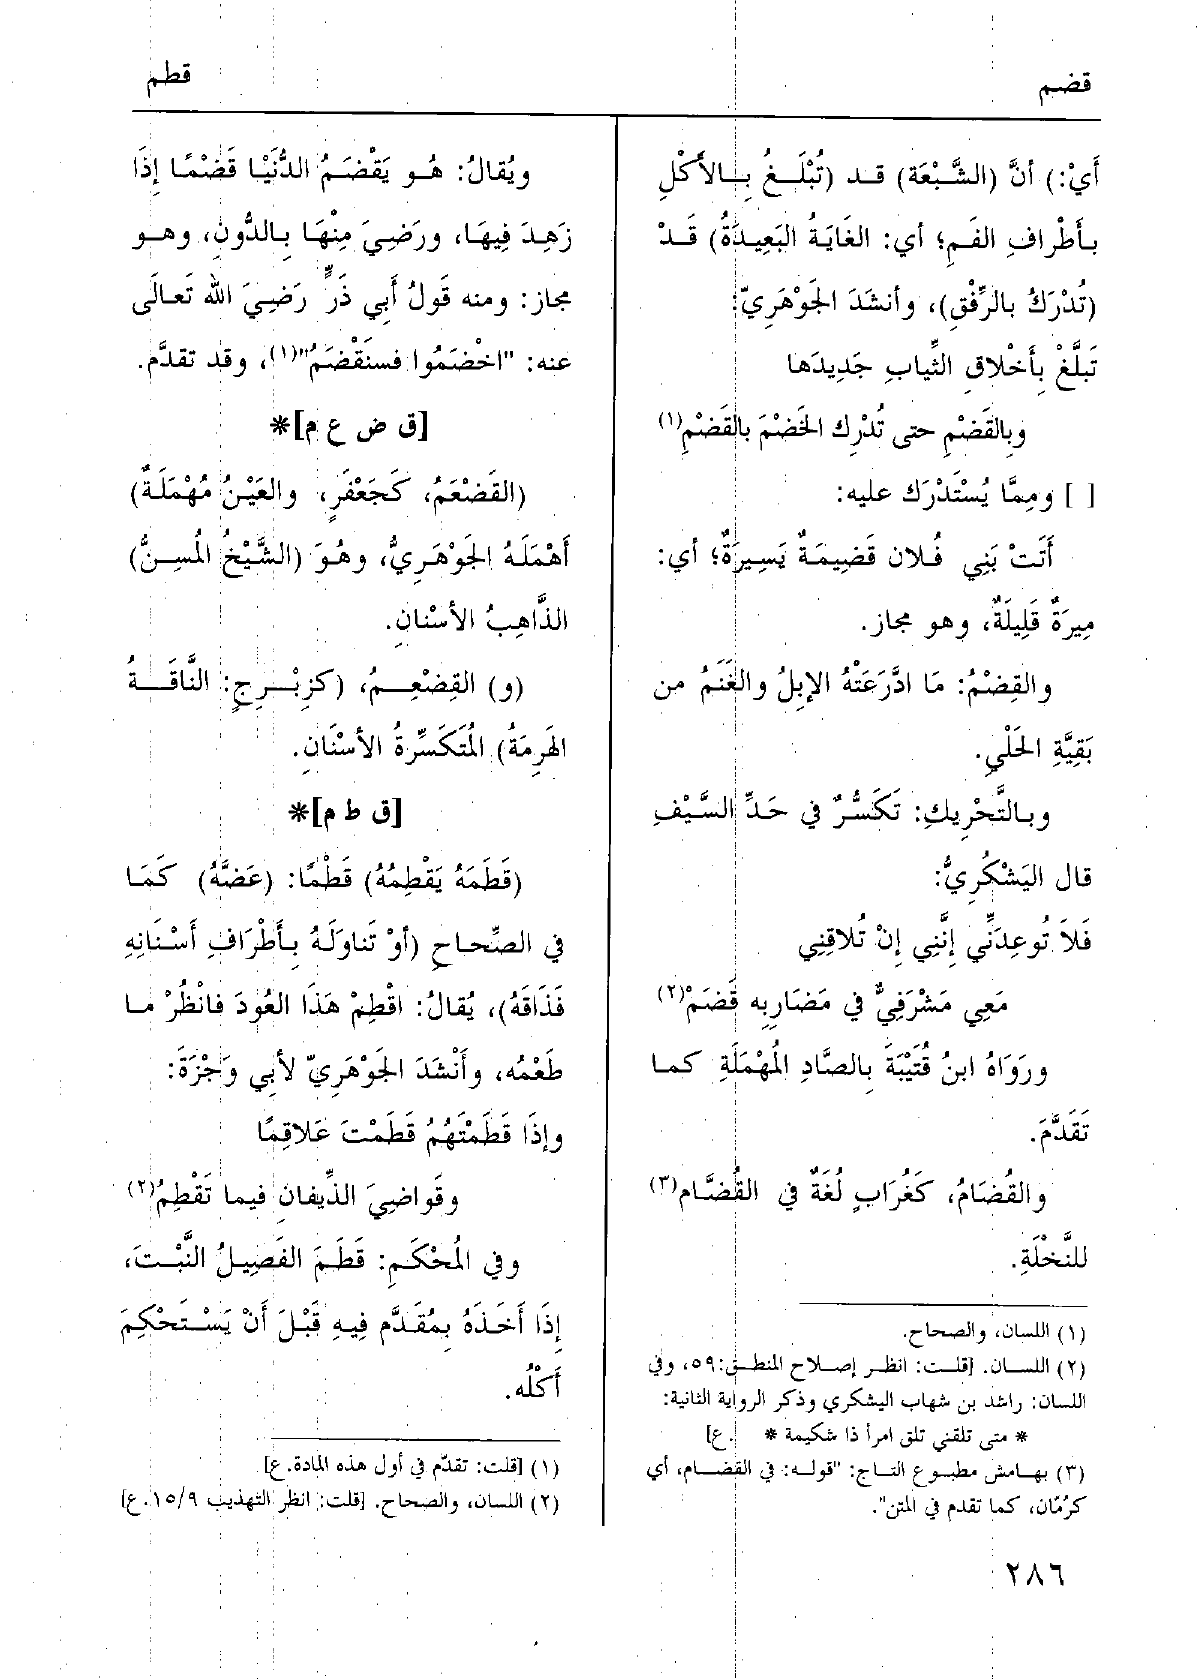 قضم
قطم
أَيْ:) أنَّ (الشَّبْعَة) قد (تُبْلَغُ بِالأَكْلِ
بأَطْرافِ الفَمِ؛ أي: الغَايَةُ البَعِيدَةُ) قَدْ
(تُدْرَكُ بالرِّفْقِ)، وأنشَدَ الجَوْهَرِيّ:
تَبَلَّغْ بِأَخْلاقِ الثِّيابِ جَدِيدَها
وبِالقَضْمِ حتى تُدْرِك الخَضْمَ بالقَضْمِ(١)
[ ] ومِمَّا يُسْتَدْرَك عليه:
أَتَتْ بَنِي فُلان قَضِيمَةٌ يَسِيرَةٌ؛ أي:
مِيرَةٌ قَلِيلَةٌ، وهو مجاز.
والقِضْمُ: مَا ادَّرَعَتْهُ الإبِلُ والغَنَمُ من
بَقِيَّةِ الحَلْيِ.
وبالتَّحْرِيكِ: تَكَسُّرٌ في حَدِّ السَّيْفِ
قال اليَشْكُرِيُّ:
فَلاَ تُوعِدَنِّي إِنَّنِي إِنْ تُلاقِنِي
مَعِي مَشْرَفِيٌّ في مَضَارِبِه قَضَمْ(٢)
ورَوَاهُ ابنُ قُتَيْبَةَ بِالصَّادِ المُهْمَلَةِ كما
تَقَدَّمَ.
والقُضَامُ، كَغُرَابٍ لُغَةٌ في القُضَّام(٣)
للنَّخْلَةِ.
(١) اللسان، والصحاح.
(٢) اللسان. [قلت: انظر إصلاح المنطق:٥٩، وفي
اللسان: راشد بن شهاب اليشكري وذكر الرواية الثانية:
* متى تلقني تلق امرأ ذا شكيمة * .ع]
(٣) بهامش مطبوع التاج: "قوله: في القضام، أي
كرُمّان، كما تقدم في المتن".
ويُقالُ: هُو يَقْضَمُ الدُّنْيَا قَضْمًا إِذَا
زَهِدَ فِيهَا، ورَضِيَ مِنْهَا بِالدُّونِ، وهو
مجاز: ومنه قَولُ أَبِي ذَرٍّ رَضِيَ الله تَعالَى
عنه: "اخْضَمُوا فسنَقْضَمُ"(١)، وقد تقدَّم.
[ق ض ع م]*
(القَضْعَمُ، كَجَعْفَرٍ، والعَيْنُ مُهْمَلَةٌ)
أَهْمَلَهُ الجَوْهَرِيُّ، وهُوَ (الشَّيْخُ المُسِنُّ)
الذَّاهِبُ الأسْنانِ.
(و) القِضْعِمُ، (كزِبْرِجٍ: النَّاقَةُ
الهَرِمَةُ) المُتَكَسِّرةُ الأسْنَانِ.
[ق ط م]*
(قَطَمَهُ يَقْطِمُهُ) قَطْمًا: (عَضَّهُ) كَمَا
في الصِّحاحِ (أوْ تَناوَلَهُ بِأَطْرَافِ أَسْنَانِهِ
فَذَاقَهُ)، يُقالُ: اقْطِمْ هَذَا العُودَ فانْظُرْ ما
طَعْمُه، وأَنْشَدَ الجَوْهَرِيّ لأبي وَجْزَةَ:
وإذَا قَطَمْتَهُمُ قَطَمْتَ عَلاقِمًا
وقَواضِيَ الذِّيفان فيما تَقْطِمُ(٢)
وفي المُحْكَمِ: قَطَمَ الفَصِيلُ النَّبْتَ،
إِذَا أَخَذَهُ بِمُقَدَّم فِيهِ قَبْلَ أَنْ يَسْتَحْكِمَ
أَكْلُه.
(١) [قلت: تقدّم في أول هذه المادة.ع]
(٢) اللسان، والصحاح. [قلت: انظر التهذيب ١٥/٩.ع]
٢٨٦